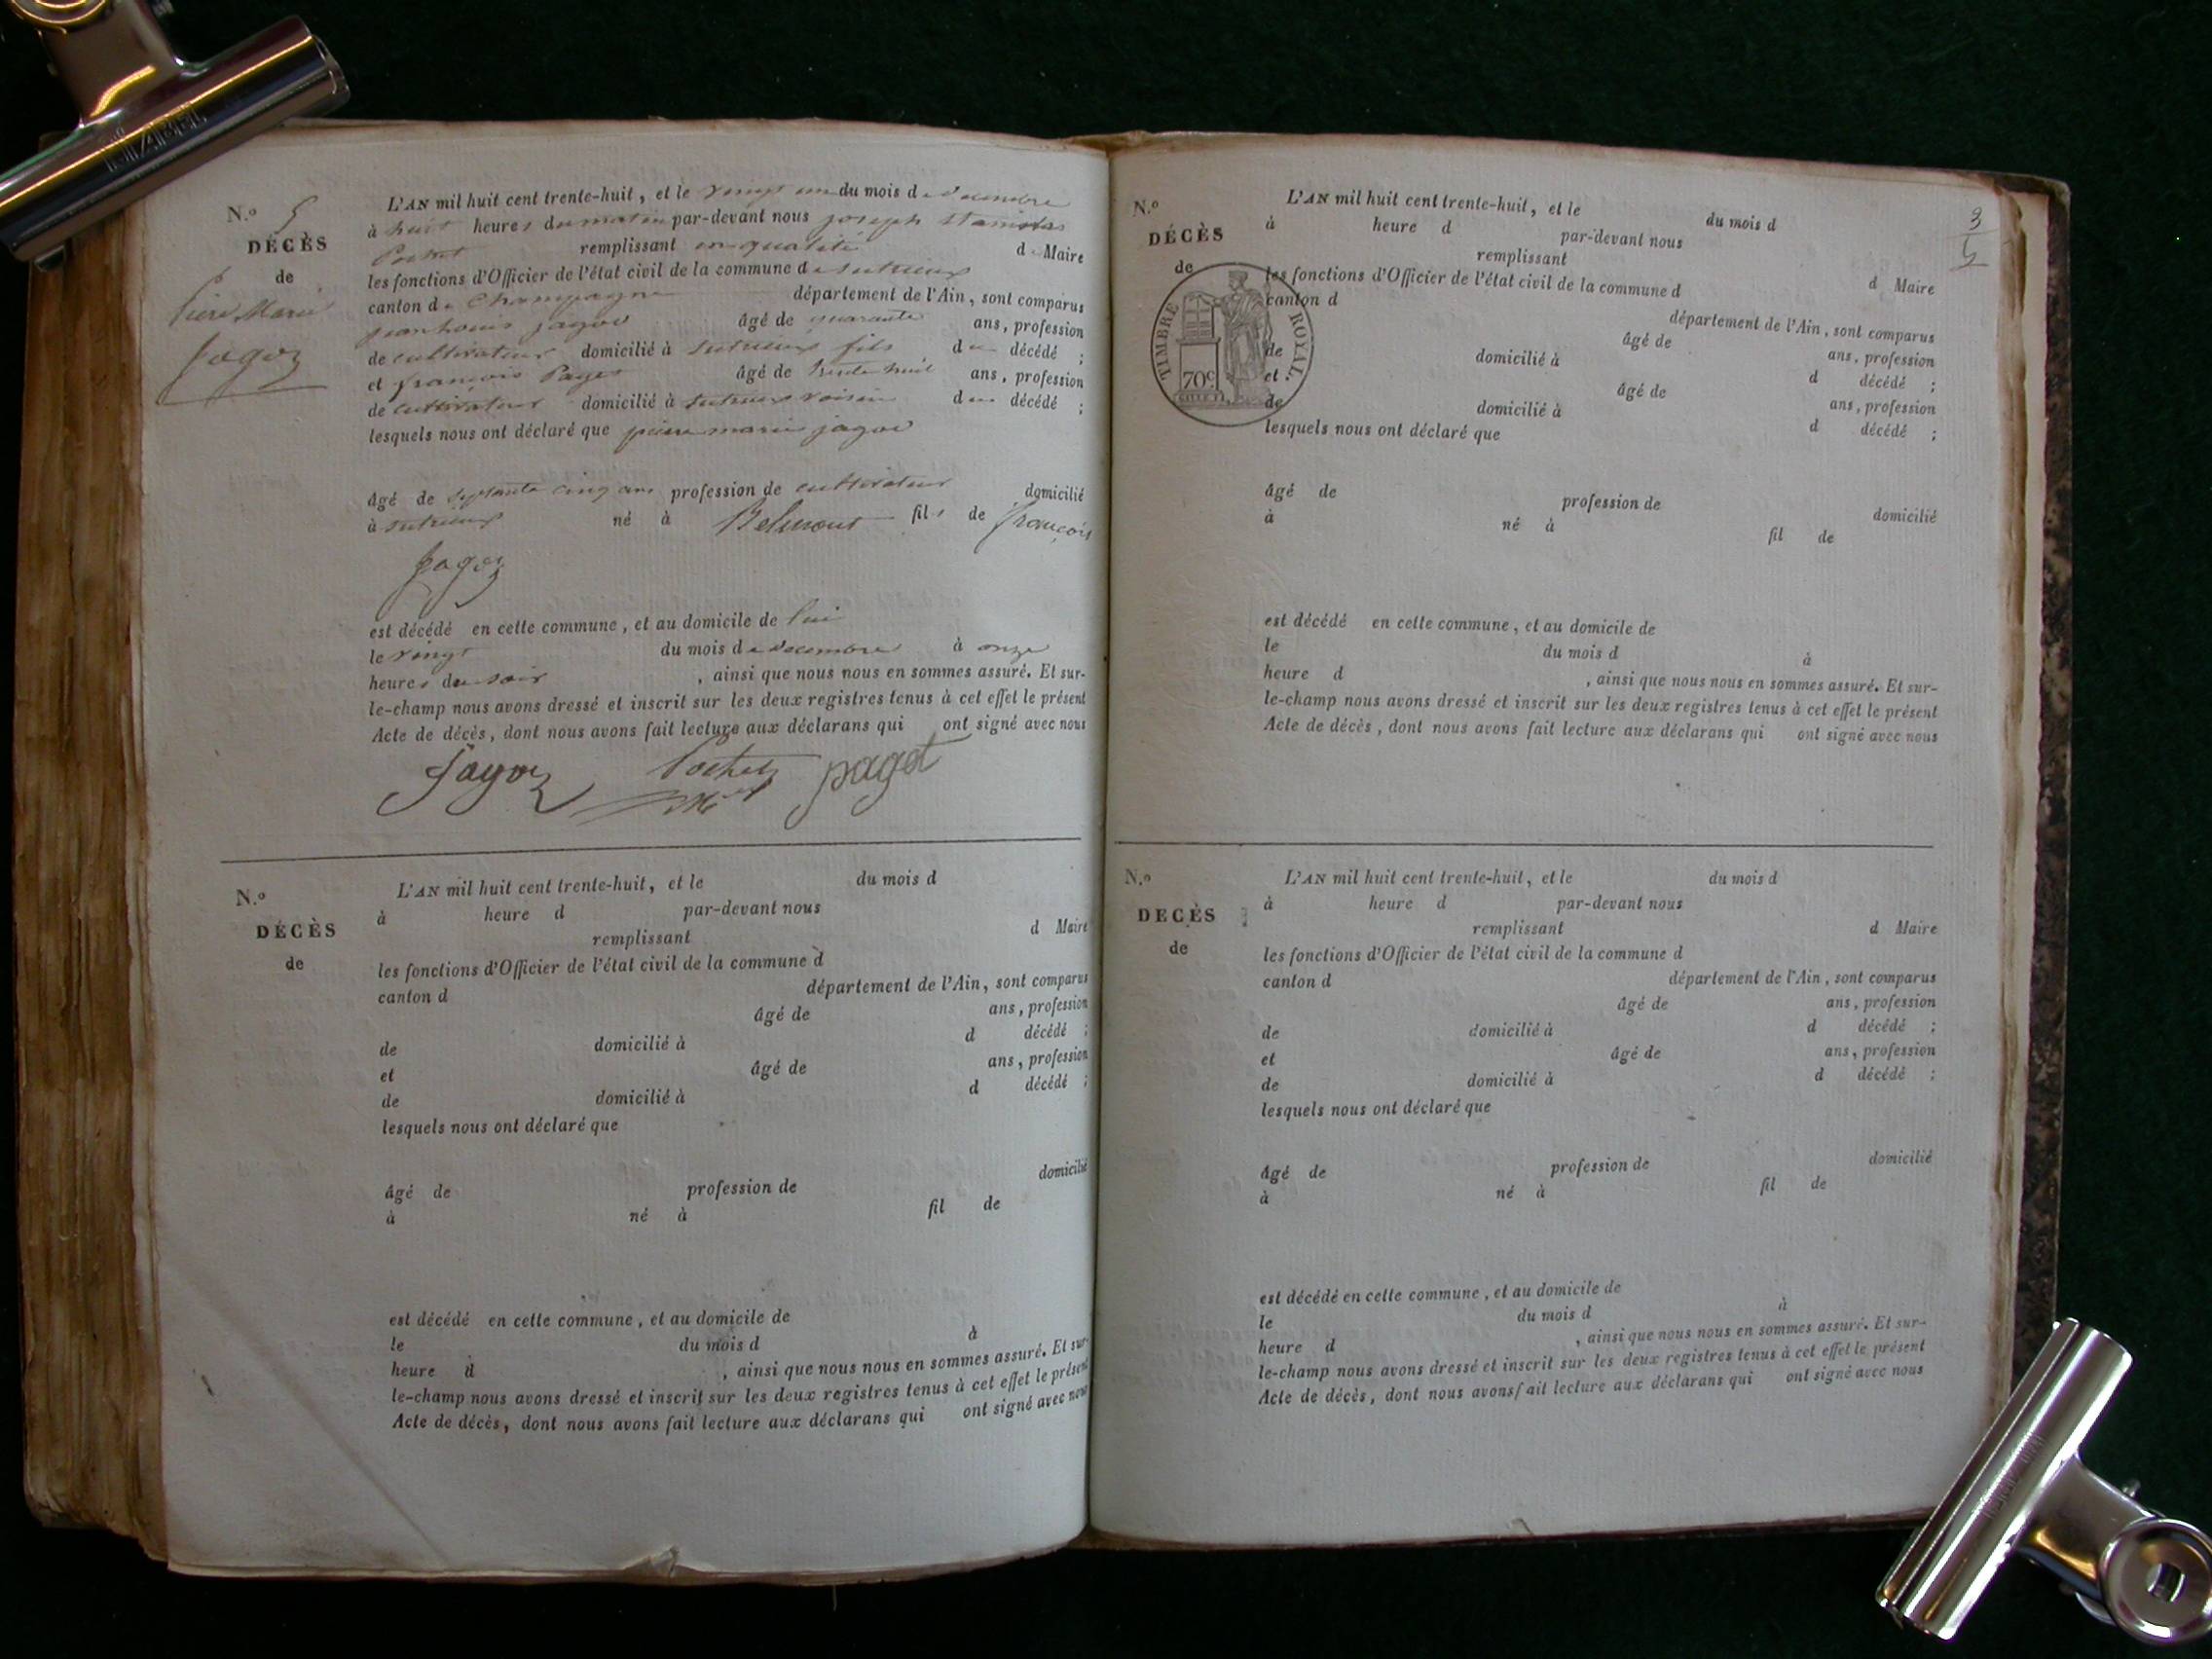 N.º 5
DÉCÈS
de
Pierre Marie
Jagoz
L'AN mil huit cent trente-huit, et le vingt un du mois de decembre
à huit heures du matin par-devant nous joseph stanislas
Pochet remplissant en qualité de Maire
les fonctions d'Officier de l'état civil de la commune de sutrieux
canton de Champagne département de l'Ain, sont comparus
jean louis jagoz âgé de quarante ans, profession
de cultivateur domicilié à sutrieux fils du décédé ;
et françois Paget âgé de trente huit ans, profession
de cultivateur domicilié à sutrieux voisin du décédé ;
lesquels nous ont déclaré que pierre marie jagoz
âgé de septante cinq ans profession de cultivateur domicilié
à sutrieux né à Belmont fils de françois
Jagoz
est décédé en cette commune, et au domicile de lui
le vingt du mois de decembre à onze
heures du soir, ainsi que nous nous en sommes assuré. Et sur-
le-champ nous avons dressé et inscrit sur les deux registres tenus à cet effet le présent
Acte de décès, dont nous avons fait lecture aux déclarans qui ont signé avec nous
Jagoz Pochet paget
N.º
DÉCÈS
de
L'AN mil huit cent trente-huit, et le du mois d
à heure d par-devant nous
remplissant d Maire
les fonctions d'Officier de l'état civil de la commune d
canton d département de l'Ain, sont comparus
âgé de ans, profession
de domicilié à d décédé ;
et âgé de ans, profession
de domicilié à d décédé ;
lesquels nous ont déclaré que
âgé de profession de domicilié
à né à fil de
est décédé en cette commune, et au domicile de
le du mois d à
heure d , ainsi que nous nous en sommes assuré. Et sur-
le-champ nous avons dressé et inscrit sur les deux registres tenus à cet effet le présent
Acte de décès, dont nous avons fait lecture aux déclarans qui ont signé avec nous
3
5
N.º
DÉCÈS
de
TIMBRE ROYAL
70c
L'AN mil huit cent trente-huit, et le du mois d
à heure d par-devant nous
remplissant d Maire
les fonctions d'Officier de l'état civil de la commune d
canton d département de l'Ain, sont comparus
âgé de ans, profession
de domicilié à d décédé ;
et âgé de ans, profession
de domicilié à d décédé ;
lesquels nous ont déclaré que
âgé de profession de domicilié
à né à fil de
est décédé en cette commune, et au domicile de
le du mois d à
heure d , ainsi que nous nous en sommes assuré. Et sur-
le-champ nous avons dressé et inscrit sur les deux registres tenus à cet effet le présent
Acte de décès, dont nous avons fait lecture aux déclarans qui ont signé avec nous
N.º
DECÈS
de
L'AN mil huit cent trente-huit, et le du mois d
à heure d par-devant nous
remplissant d Maire
les fonctions d'Officier de l'état civil de la commune d
canton d département de l'Ain, sont comparus
âgé de ans, profession
de domicilié à d décédé ;
et âgé de ans, profession
de domicilié à d décédé ;
lesquels nous ont déclaré que
âgé de profession de domicilié
à né à fil de
est décédé en cette commune, et au domicile de
le du mois d à
heure d , ainsi que nous nous en sommes assuré. Et sur-
le-champ nous avons dressé et inscrit sur les deux registres tenus à cet effet le présent
Acte de décès, dont nous avons fait lecture aux déclarans qui ont signé avec nous